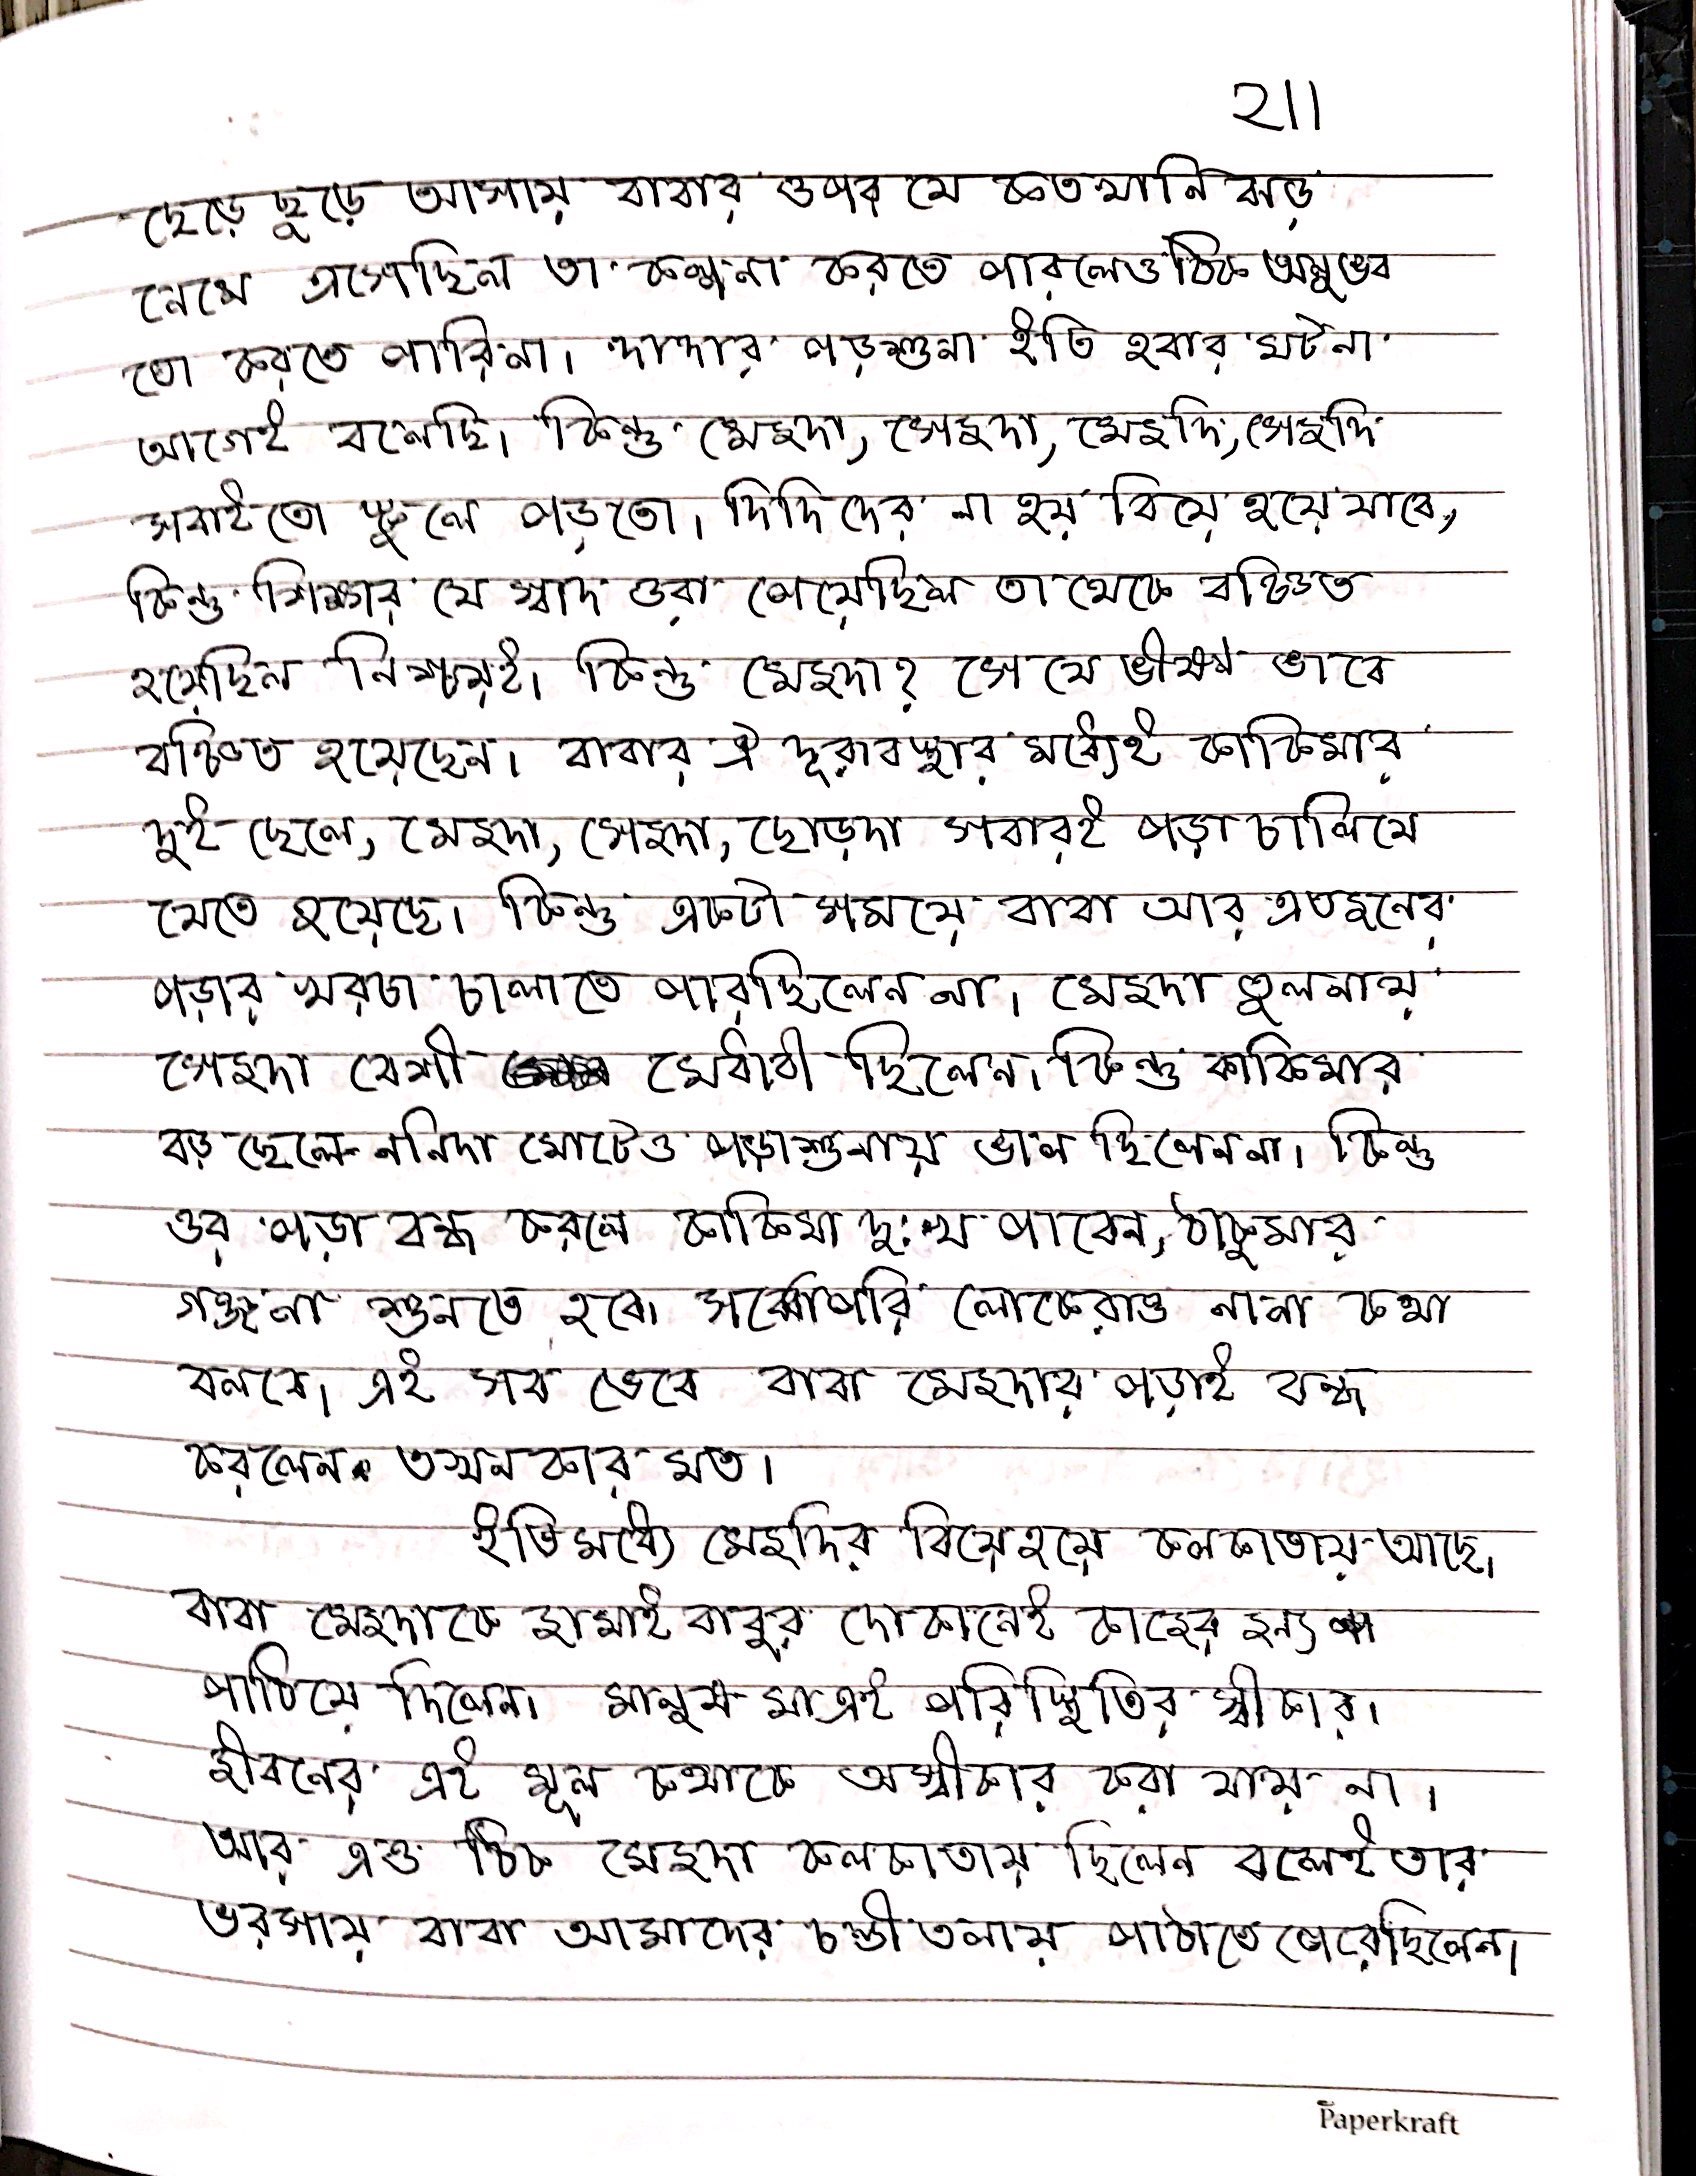 ২১১
ছেড়ে ছুড়ে আসায় বাবার ওপর যে কতখানি ঝড়
নেমে এসেছিল তা কল্পনা করতে পারলেও ঠিক অনুভব
তো করতে পারিনা। দাদার পড়শুনা ইতি হবার ঘটনা
আগেই বলেছি। কিন্তু মেজদা, সেজদা, মেজদি, সেজদি
সবাইতো স্কুলে পড়তো। দিদিদের না হয় বিয়ে হয়ে যাবে,
কিন্তু শিক্ষার যে স্বাদ ওরা পেয়েছিল তা থেকে বঞ্চিত
হয়েছিল নিশ্চয়ই। কিন্তু মেজদা? সে যে ভীষণ ভাবে
বঞ্চিত হয়েছেন। বাবার ঐ দূরাবস্থার মধ্যেই কাকিমার
দুই ছেলে, মেজদা, সেজদা, ছোড়দা সবারই পড়া চালিয়ে
যেতে হয়েছে। কিন্তু একটা সময়ে বাবা আর এতজনের
পড়ার খরচা চালাতে পারছিলেন না। মেজদা তুলনায়
সেজদা বেশী মেধাবী ছিলেন। কিন্তু কাকিমার
বড় ছেলে ননিদা মোটেও পড়াশুনায় ভাল ছিলেননা। কিন্তু
ওর পড়া বন্ধ করলে কাকিমা দুঃখ পাবেন, ঠাকুমার
গঞ্জনা শুনতে হবে। সর্ব্বোপরি লোকেরাও নানা কথা
বলবে। এই সব ভেবে বাবা মেজদার পড়াই বন্ধ
করলেন তখনকার মত।
ইতিমধ্যে মেজদির বিয়ে হয়ে কলকাতায় আছে।
বাবা মেজদাকে জামাইবাবুর দোকানেই কাজের জন্য
পাঠিয়ে দিলেন। মানুষ মাএই পরিস্থিতির স্বীকার।
জীবনের এই মূল কথাকে অস্বীকার করা যায় না।
আর এও ঠিক মেজদা কলকাতায় ছিলেন বলেই তার
ভরসায় বাবা আমাদের চন্ডীতলায় পাঠাতে পেরেছিলেন।
Paperkraft